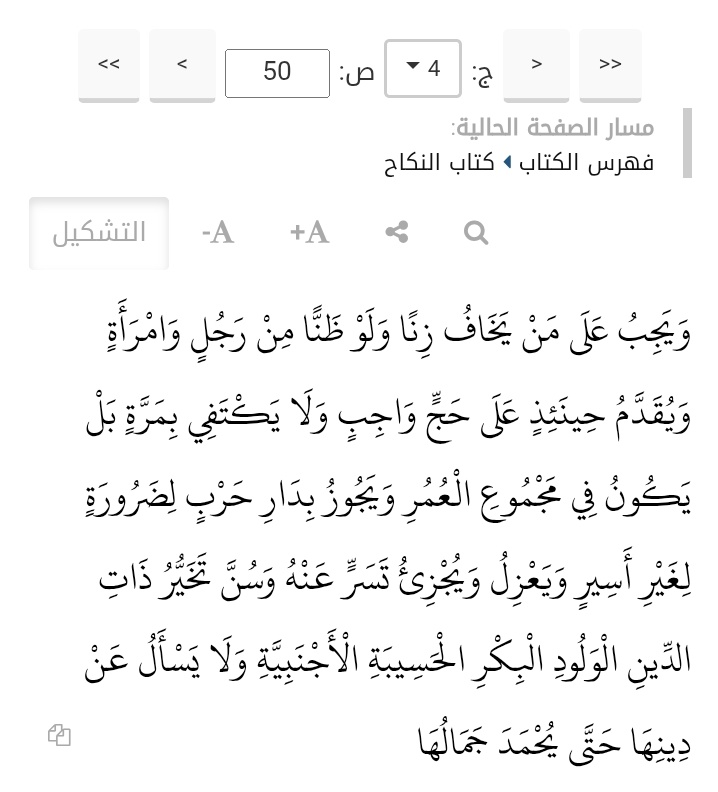 >> > ج: 4 ص: 50 < <<
مسار الصفحة الحالية:
فهرس الكتاب كتاب النكاح
A+ A- التشكيل
وَيَجِبُ عَلَى مَنْ يَخَافُ زِنًا وَلَوْ ظَنًّا مِنْ رَجُلٍ وَامْرَأَةٍ
وَيُقَدَّمُ حِينَئِذٍ عَلَى حَجٍّ وَاجِبٍ وَلَا يَكْتَفِي بِمَرَّةٍ بَلْ
يَكُونُ فِي مَجْمُوعِ الْعُمُرِ وَيَجُوزُ بِدَارِ حَرْبٍ لِضَرُورَةٍ
لِغَيْرِ أَسِيرٍ وَيَعْزِلُ وَيُجْزِئُ تَسَرٍّ عَنْهُ وَسُنَّ تَخَيُّرُ ذَاتِ
الدِّينِ الْوَلُودِ الْبِكْرِ الْحَسِيبَةِ الْأَجْنَبِيَّةِ وَلَا يَسْأَلُ عَنْ
دِينِهَا حَتَّى يُحْمَدَ جَمَالُهَا